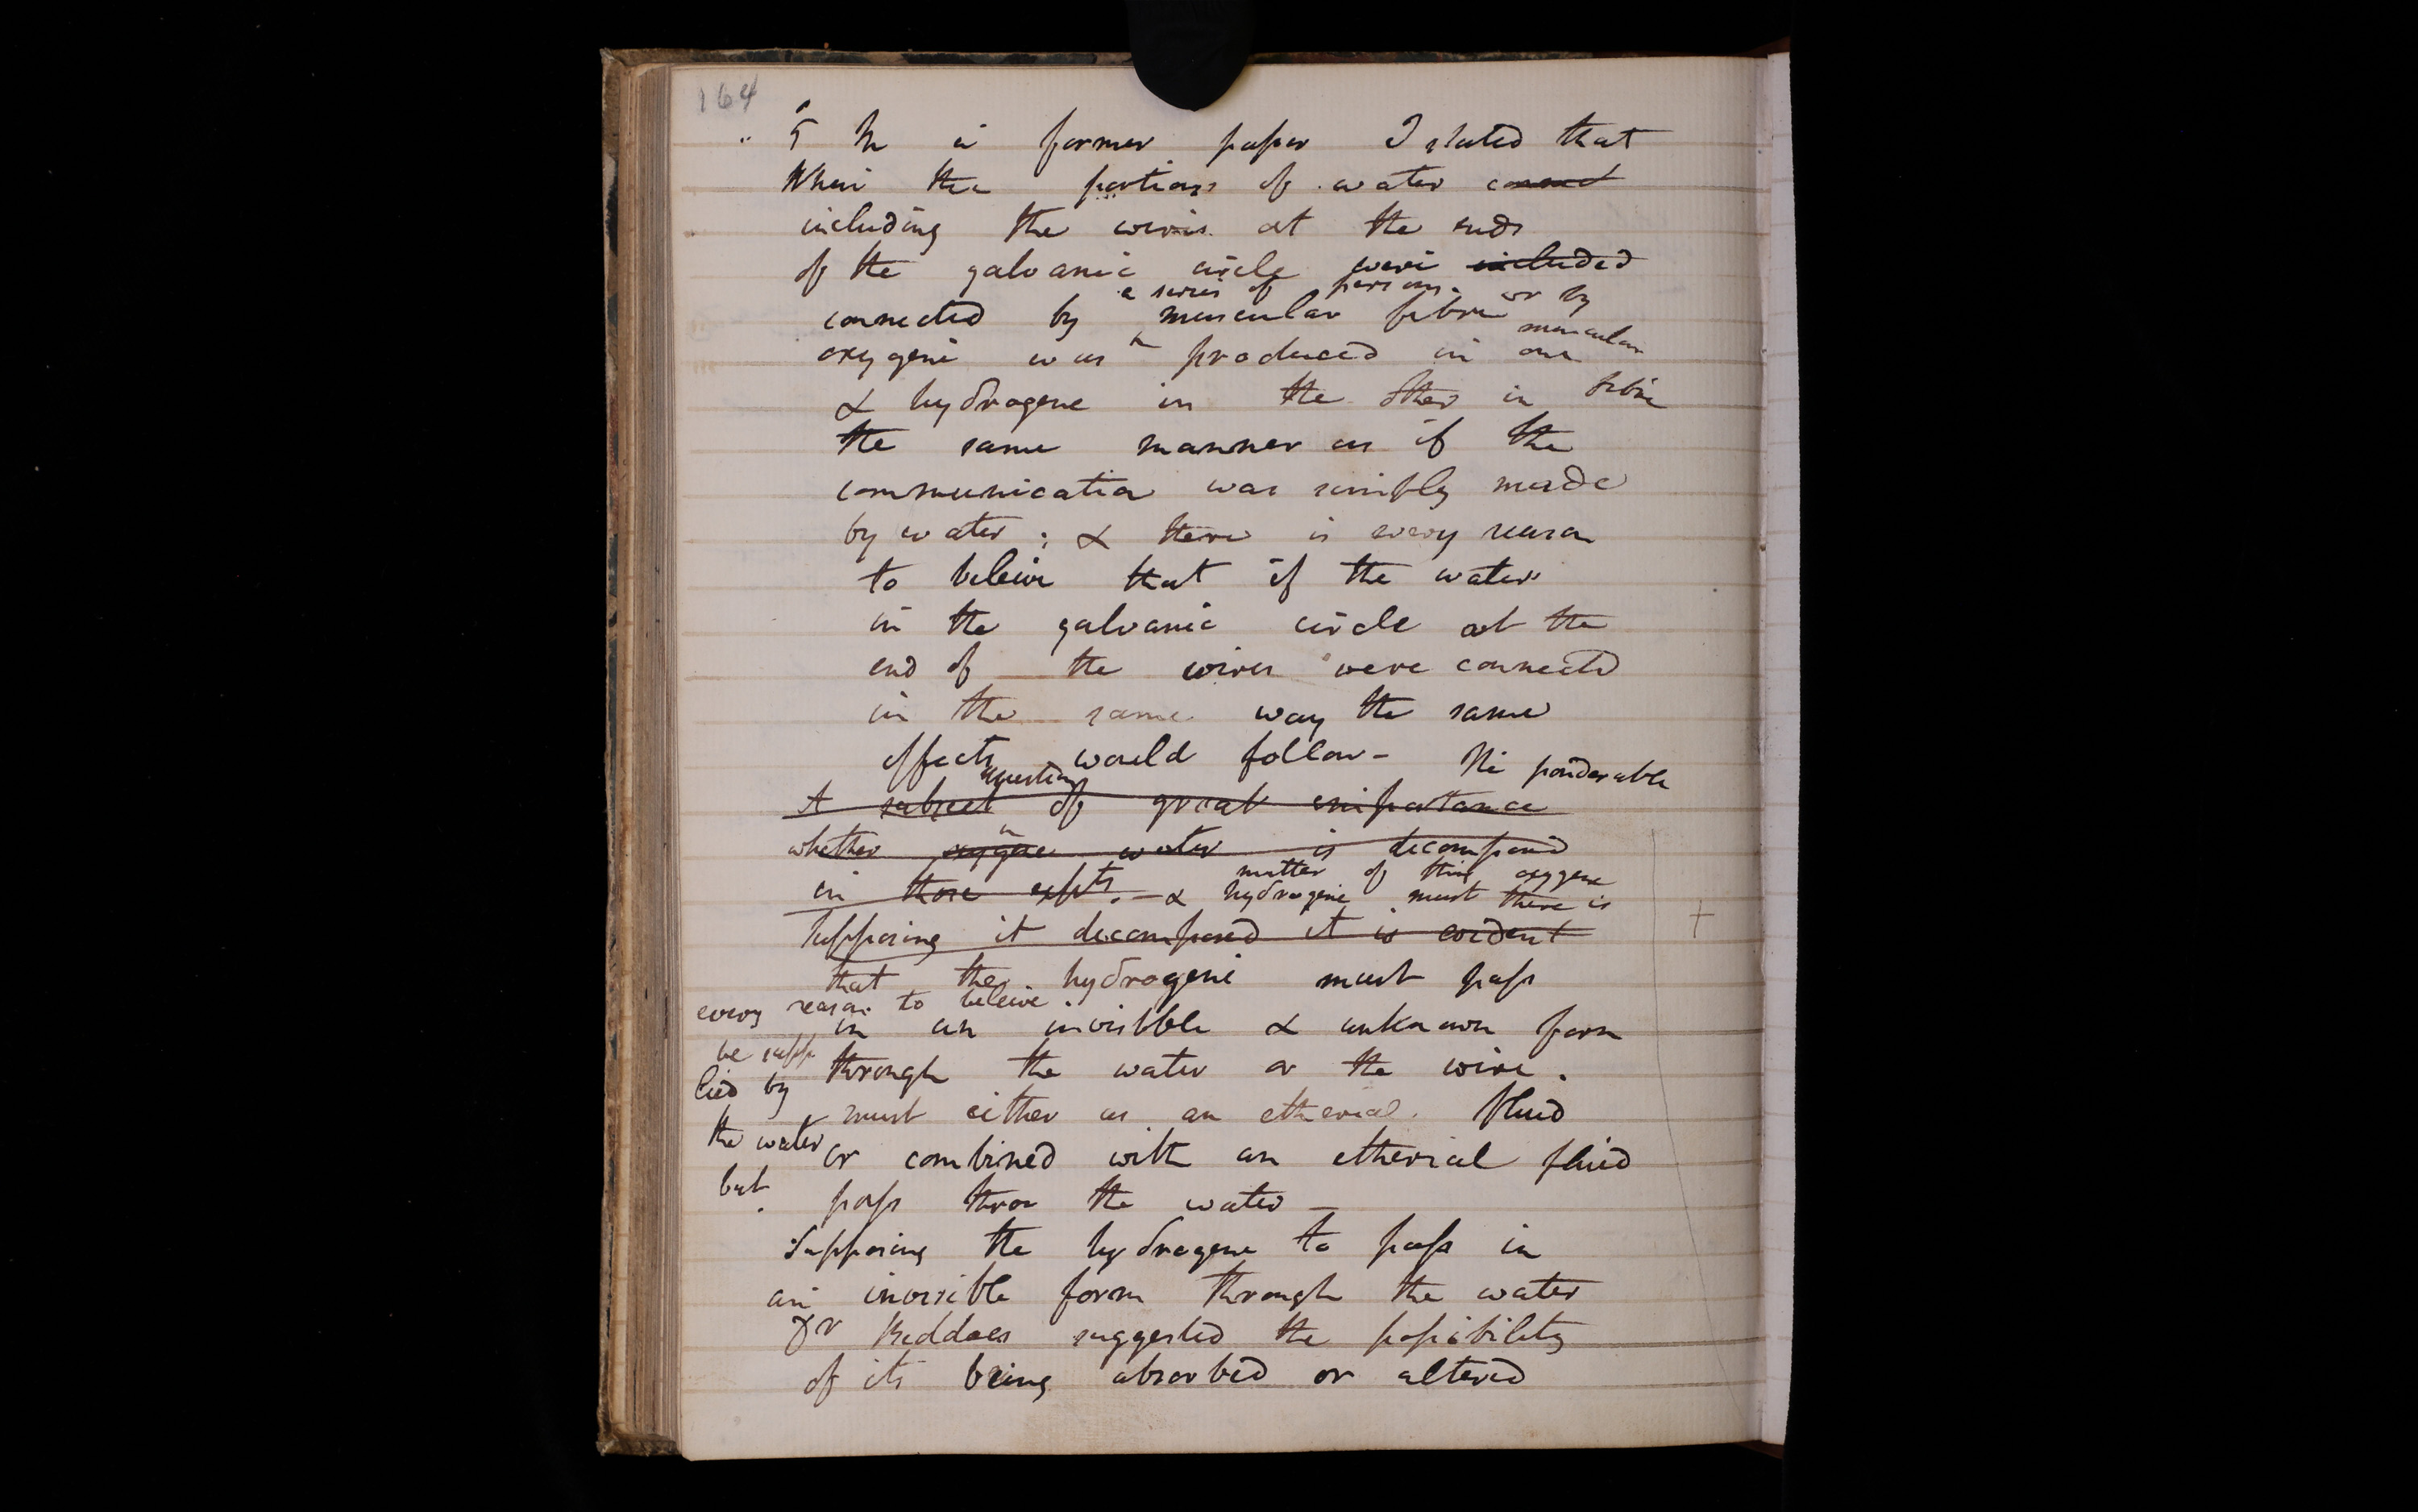 164
5 In a former paper I stated that
When the portions of water connect
including the wires at the ends
of the galvanic circle were included
a series of persons or by
connected by muscular fibre muscular
oxygene was produced in one
& hydrogene in the other in fibre
the same manner as if the
communication was simply made
by water; & there is every reason
to beleive that if the water
in the galvanic circle at the
end of the wires were connected
in the same way the same
effects would follow - The ponderable
question
A subject of great importance
whether oxygene water is decomposed
matter of this oxygene
in those expts. - & hydrogene must there is
Supposing it decomposed it is evident
that the hydrogene must pass
every reason to beleive
in an invisible & unknown form
be supp
through the water or the wire.
lied by
must either as an etherial fluid
the water
or combined with an etherial fluid
but
pass thro the water -
Supposing the hydrogene to pass in
an invisible form through the water
Dr Beddoes suggested the possibility
of its being absorbed or altered